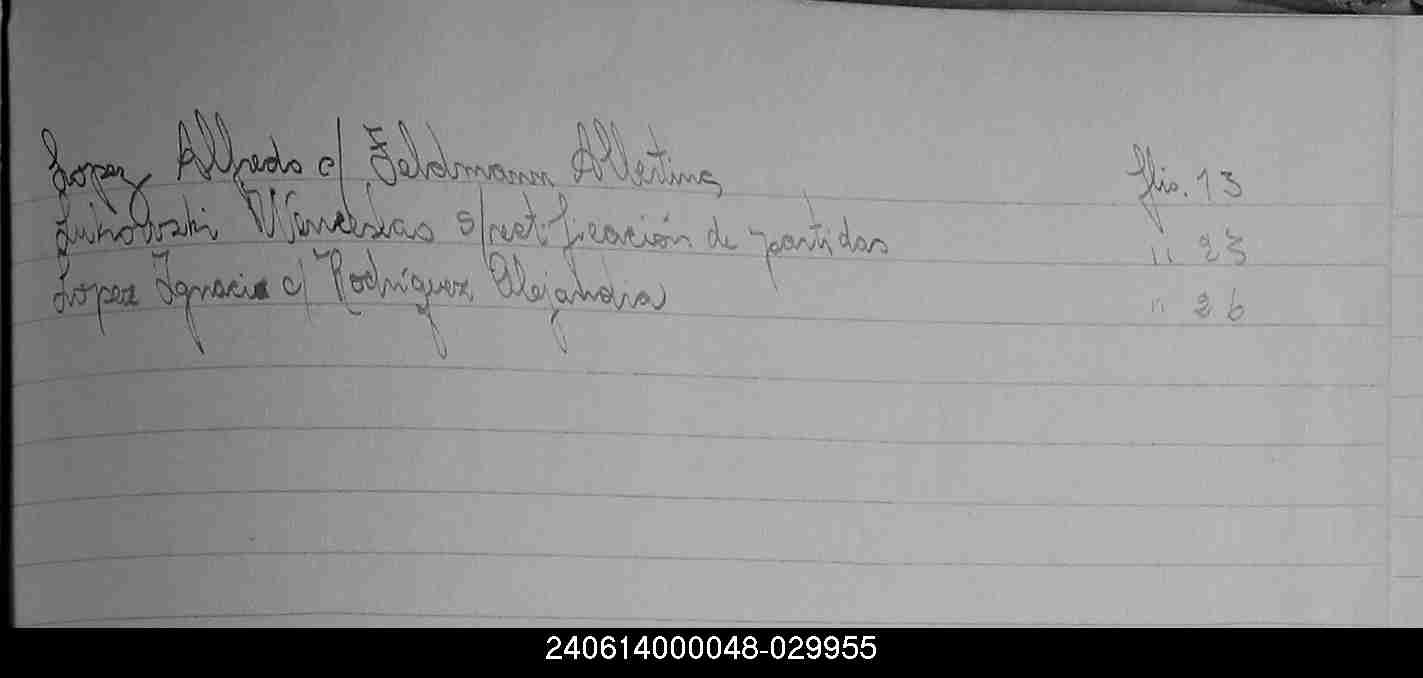 Lopez Alfredo c/ Feldmann Albertina flio. 13
Wenceslao s/rectificación de partidas " 23
Lopez Ignacio c/ Rodríguez Alejandra " 26
240614000048-029955